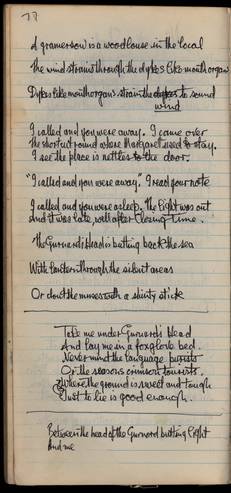 77
A gramersow is a woodlouse in the local
The wind strains through the dykes like mouth organ
Dykes like mouthorgans strain the dykes to sound
wind
I called and you were away. I came over
the shortcut round where Margaret used to stay.
I see the place is nettles to the door.
"I called and you were away." I read your note
I called and you were asleep. The light was out
And it was late, well after closing-time.
The Gurnard's Head is butting back the sea
With lantern through the silent areas
Or clout the muses with a shinty stick
Take me under Gurnard's Head
And lay me in a foxglove bed.
Never mind the language purists
Or the seasons crimson tourists.
Where the ground is sweet and tough
Just to lie is good enough.
Between the head of the Gurnard butting light
And me